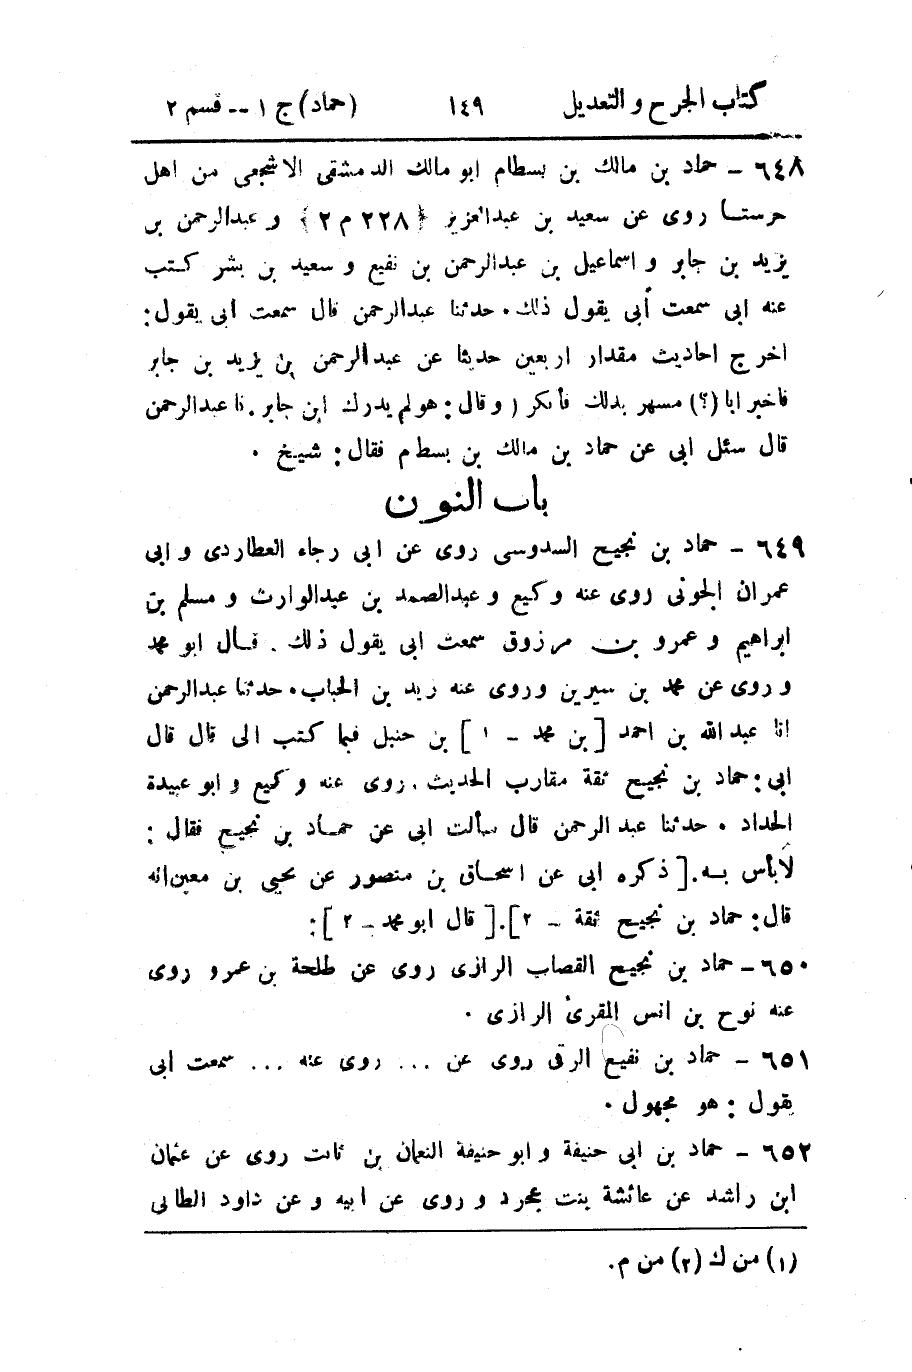 كتاب الجرح والتعديل ١٤٩ (حماد) ج ١ -- قسم ٢
٦٤٨ - حماد بن مالك بن بسطام ابو مالك الدمشقى الاشجعى من اهل
حرستا روى عن سعيد بن عبدالعزيز { ٢٢٨ م ٢ } و عبدالرحمن بن
يزيد بن جابر و اسماعيل بن عبدالرحمن بن نفيع و سعيد بن بشر كتب
عنه ابى سمعت أبى يقول ذلك . حدثنا عبدالرحمن قال سمعت ابى يقول:
اخرج احاديث مقدار اربعين حديثا عن عبدالرحمن بن يزيد بن جابر
فاخبر ابا (؟) مسهر بذلك فأنكر، وقال: هو لم يدرك ابن جابر. نا عبدالرحمن
قال سئل ابى عن حماد بن مالك بن بسطام فقال: شيخ .
باب النون
٦٤٩ - حماد بن نجيح السدوسى روى عن ابى رجاء العطاردى و ابى
عمران الجونى روى عنه وكيع و عبدالصمد بن عبدالوارث و مسلم بن
ابراهيم و عمرو بن مرزوق سمعت ابى يقول ذلك . قال ابو محمد
و روى عن محمد بن سيرين وروى عنه زيد بن الحباب . حدثنا عبدالرحمن
انا عبدالله بن احمد [ بن محمد - ١ ] بن حنبل فيما كتب الى قال قال
ابى: حماد بن نجيح ثقة مقارب الحديث . روى عنه وكيع و ابو عبيدة
الحداد . حدثنا عبد الرحمن قال سألت ابى عن حماد بن نجيح فقال :
لابأس به. [ ذكره ابى عن اسحاق بن منصور عن يحيى بن معين انه
قال: حماد بن نجيح ثقة - ٢]. [ قال ابو محمد - ٢ ]:
٦٥٠ - حماد بن نجيح القصاب الرازى روى عن طلحة بن عمرو روى
عنه نوح بن انس المقرئ الرازى .
٦٥١ - حماد بن نفيع الرقى روى عن ... روى عنه ... سمعت ابى
يقول : هو مجهول .
٦٥٢ - حماد بن ابى حنيفة و ابو حنيفة النعمان بن ثابت روى عن عثمان
ابن راشد عن عائشة بنت عجرد و روى عن ابيه و عن داود الطائى
(١) من ك (٢) من م.